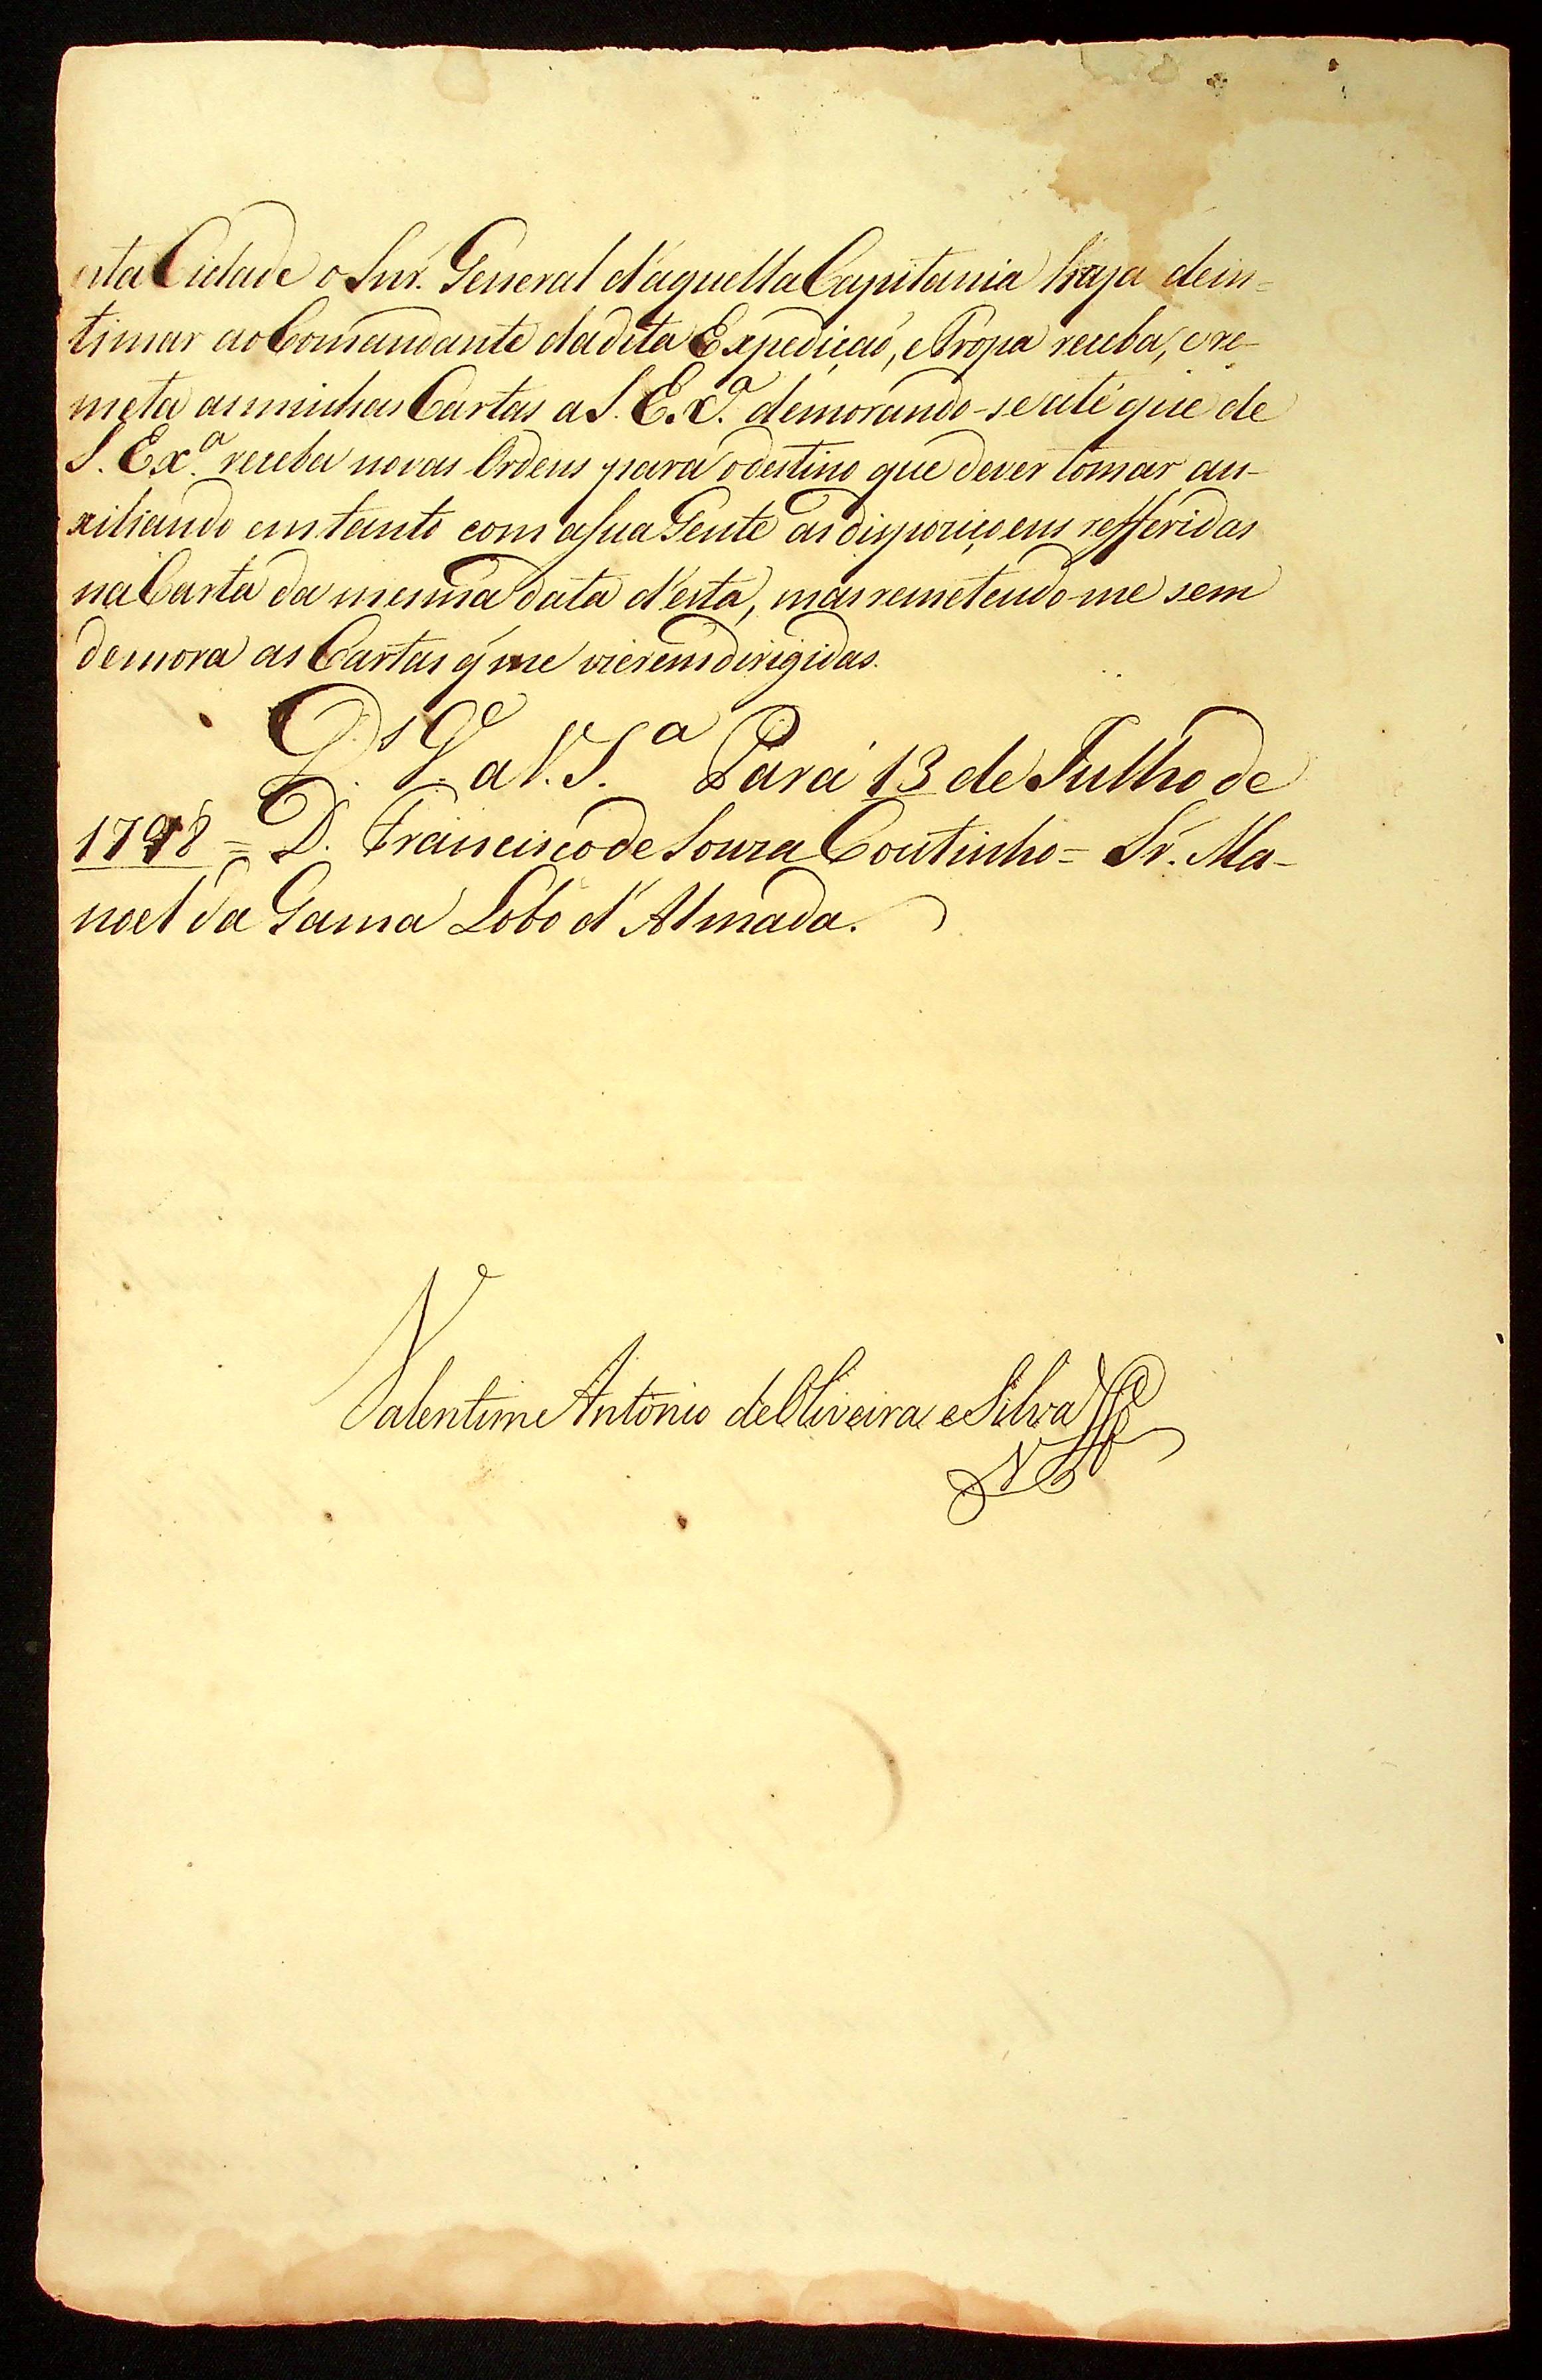 esta Cidade o Snr. General d'aquella Capitania haja dein=
timar ao Comandante dadita Expedicaõ, eTropa receba, e re-
meta asminhas Cartas a S. Ex.ª demorando-se até que de
S. Ex.ª receba novas Ordens para odestino que dever tomar au-
xiliando emtanto com asua Gente asdispoziçoens refferidas
na Carta da mesma data d'esta, masremetendo-me sem
demora as Cartas q̃ me vierem dirigidas.
D.s G.e a V. S.ª Pará 13 de Julho de
1798 = D. Francisco de Souza Coutinho = Sr. Ma-
noel da Gama Lobo d'Almada.
Valentim Antonio deOliveira eSilva